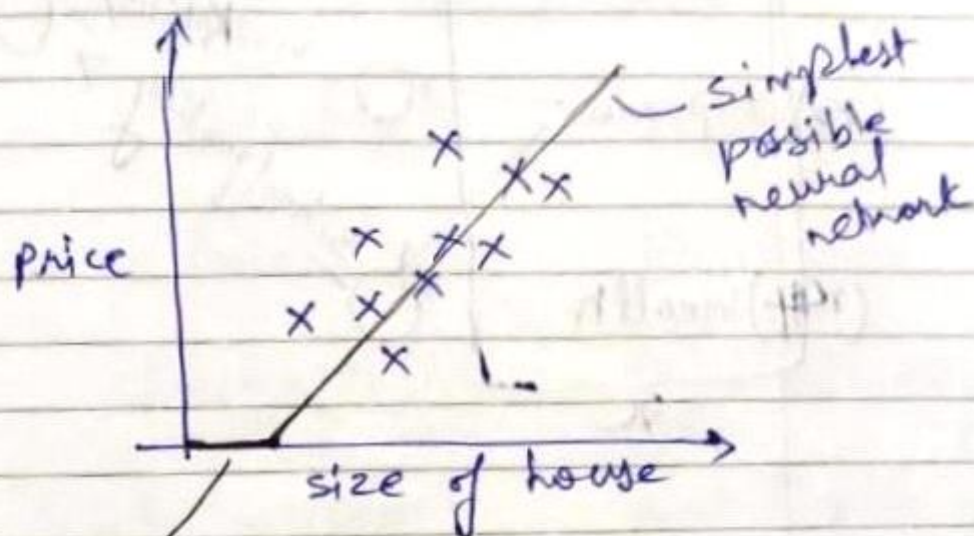 simplest
possible
neural
network
price
size of house